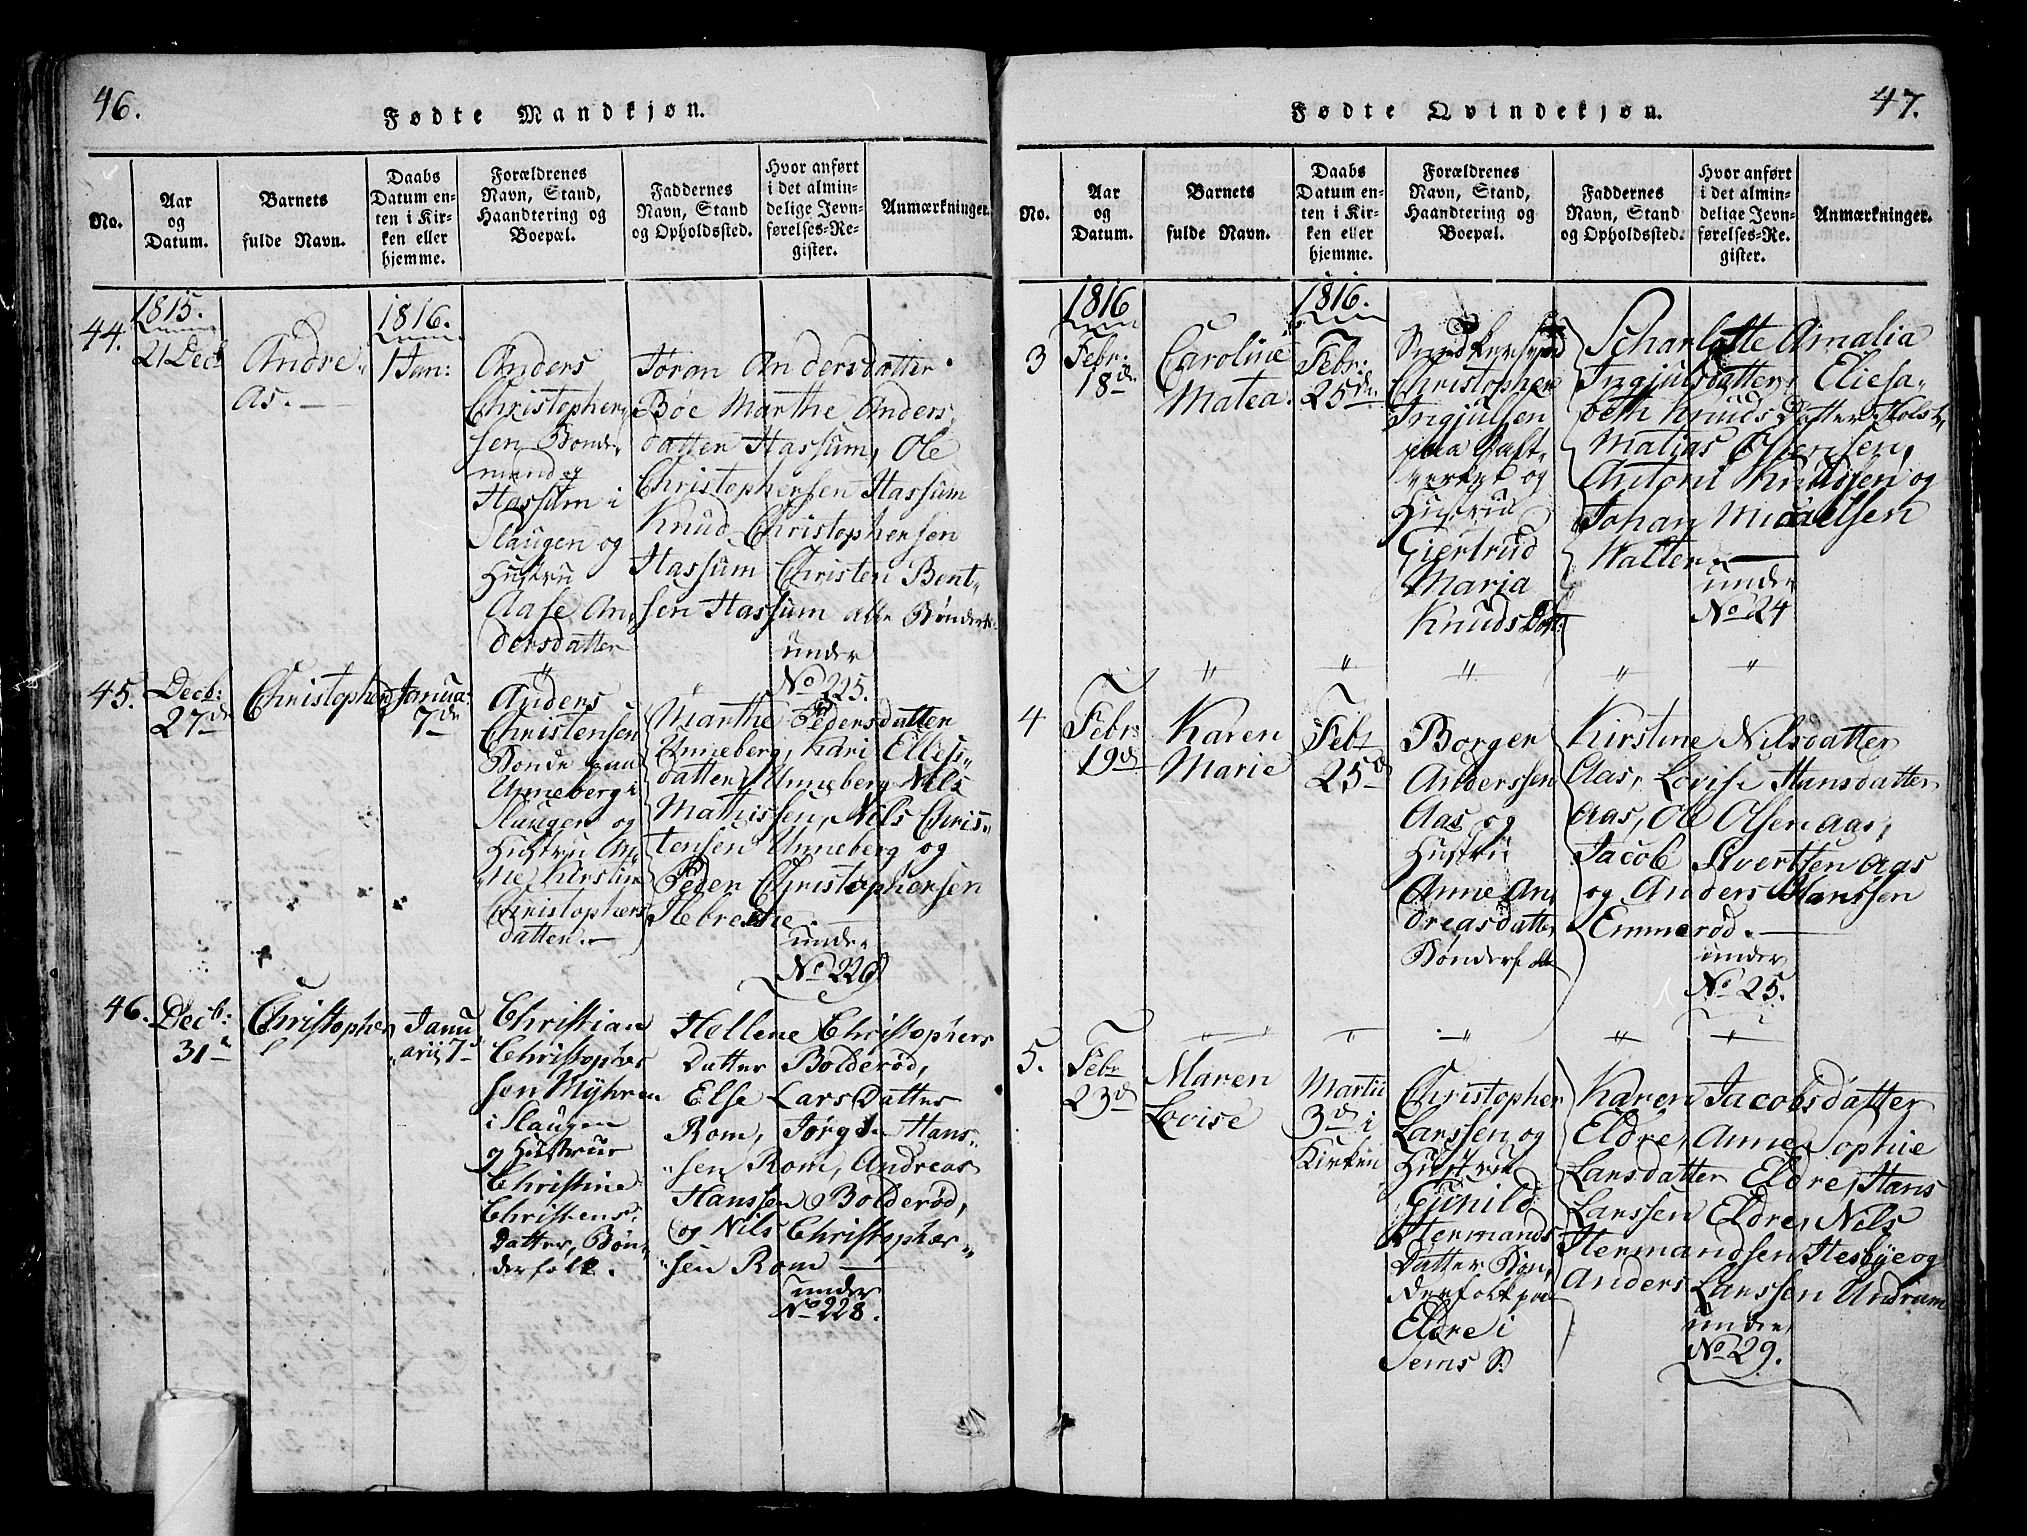 46.
Fødte Mandkjøn.
No.
Aar
og
Datum.
Barnets
fulde Navn.
Daabs
Datum en-
ten i Kir-
ken eller
hjemme.
Forældrenes
Navn, Stand,
Haandtering og
Boepæl.
Faddernes
Navn, Stand
og Opholdssted.
Hvor anført
i det almin-
delige Jevn-
førelses-Re-
gister.
Anmærkninger.
44.
1815.
21 Decb
Andre-
as. —
1816.
1 Jan:
Anders
Christopher-
sen Bonde
mand
Hassum i
Slaugen og
Hustru
Aase An-
dersdatter
Joran Andersdatter
Bøe Marthe Anders
datter Hassum, Ole
Christophersen Hassum
Knud Christophersen
Hassum Christen Bent-
sen Hassum alle Bønder
under
No 225.
45.
Decb:
27de
Christopher
Janua:
7de
Anders
Christensen
Bonde paa
Unneberg i
Slaugen og
Hustru An-
ne Kirstine
Christophers
datter. —
Marthe Pedersdatter
Unneberg, Kari Ellefs-
datter Unneberg Nils
Mathissen, Nils Chris-
tensen Unneberg og
Peder Christophersen
under
No 226
46.
Decb:
31
Christopher
Janu
arii 7
Christian
Christopher
sen Myhren
i Slaugen
og Hustrue
Christine
Christens
Datter, Bøn-
derfolk.
Hellene Christophers
Datter Bolderød,
Else Lars Datter
Rom, Jørgen Hans-
sen Rom, Andreas
Hanssen Bolderød,
og Nils Christopher-
sen Rom —
under
No 228.
47.
Fødte Qvindekjøn.
No.
Aar
og
Datum.
Barnets
fulde Navn.
Daabs
Datum en-
ten i Kir-
ken eller
hjemme.
Forældrenes
Navn, Stand,
Haandtering og
Boepæl.
Faddernes
Navn, Stand
og Opholdssted.
Hvor anført
i det almin-
delige Jevn-
førelses-Re-
gister.
Anmærkninger.
3
1816
Febr:
18de
Caroline
Matea.
1816.
Febr:
25de
Christopher
Ingjulsen
paa
og
Hustru
Giertrud
Maria
Knuds Datt:
Scharlotte Amalia
Ingjulsdatter, Eliesa-
beth Knuds Datter Holst,
Matias
Antoni Knudsen og
Johan
Walter. —
under
No 24
4
Febr
19de
Karen
Marie
Febr
25d
Borger
Anderssen
Aas og
Hustru
Anne An,
dreasdatter
Bønderfolk
Kirstine Nilsdatter
Aas, Lovise Hansdatter
Aas, Ole Olsen Aas,
Jacob Sivertsen Aas
og Anders Hanssen
Emmerød. —
under
No 25.
5.
Febr
23d
Maren
Lovise
Martii
3d i
Kirken
Christopher
Larssen og
Hustru
Gunild
Hermands
Datter Bøn,
derfolk paa
Eldre i
Sems S:
Karen Jacobsdatter
Eldre, Anne Sophie
Larsdatter Eldre, Hans
Larssen Eldre, Nils
Hermandsen Hesbye og
Anders Larssen Undrum
under
No 29.